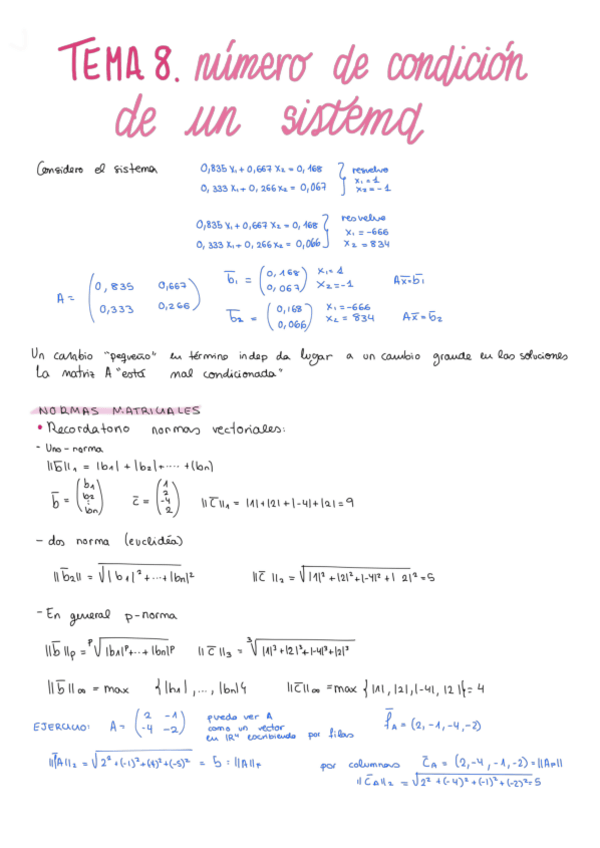 TEMA 8. número de condición
de un sistema
Considero el sistema
0,835 x₁ + 0,667 x₂ = 0,168
0,333 x₁ + 0,266 x₂ = 0,067
resuelvo
x₁ = 1
x₂ = -1
0,835 x₁ + 0,667 x₂ = 0,168
0,333 x₁ + 0,266 x₂ = 0,066
resuelvo
x₁ = -666
x₂ = 834
A = ( 0,835 0,667
0,333 0,266 )
b̄₁ = ( 0,168
0,067 ) x₁ = 1 x₂ = -1 Ax̄ = b̄₁
b̄₂ = ( 0,168
0,066 ) x₁ = -666 x₂ = 834 Ax̄ = b̄₂
Un cambio "pequeño" en término indep da lugar a un cambio grande en las soluciones
La matriz A "está mal condicionada"
NORMAS MATRICIALES
• Recordatorio normas vectoriales:
- Uno-norma
||b̄||₁ = |b₁| + |b₂| + ···· + |bn|
b̄ = ( b₁ b₂ : bn ) c̄ = ( 1 2 -4 2 ) ||c̄||₁ = |1| + |2| + |-4| + |2| = 9
- dos norma (euclidéa)
||b̄₂|| = √|b₁|² + ··· + |bn|² ||c̄||₂ = √|1|² + |2|² + |-4|² + |2|² = 5
- En general p-norma
||b̄||p = ᵖ√|b₁|ᵖ + ··· + |bn|ᵖ ||c̄||₃ = ³√|1|³ + |2|³ + |-4|³ + |2|³
||b̄||∞ = max {|b₁|, ..., |bn|} ||c̄||∞ = max {|1|, |2|, |-4|, |2|} = 4
EJERCICIO: A = ( 2 -1
-4 -2 )
puedo ver A
como un vector
en ℝ⁴ escribiendo por filas
f̄A = (2, -1, -4, -2)
||f̄A||₂ = √2² + (-1)² + (4)² + (-5)² = 5 = ||A||F
por columnas c̄A = (2, -4, -1, -2) = ||AF||
||c̄A||₂ = √2² + (-4)² + (-1)² + (-2)² = 5